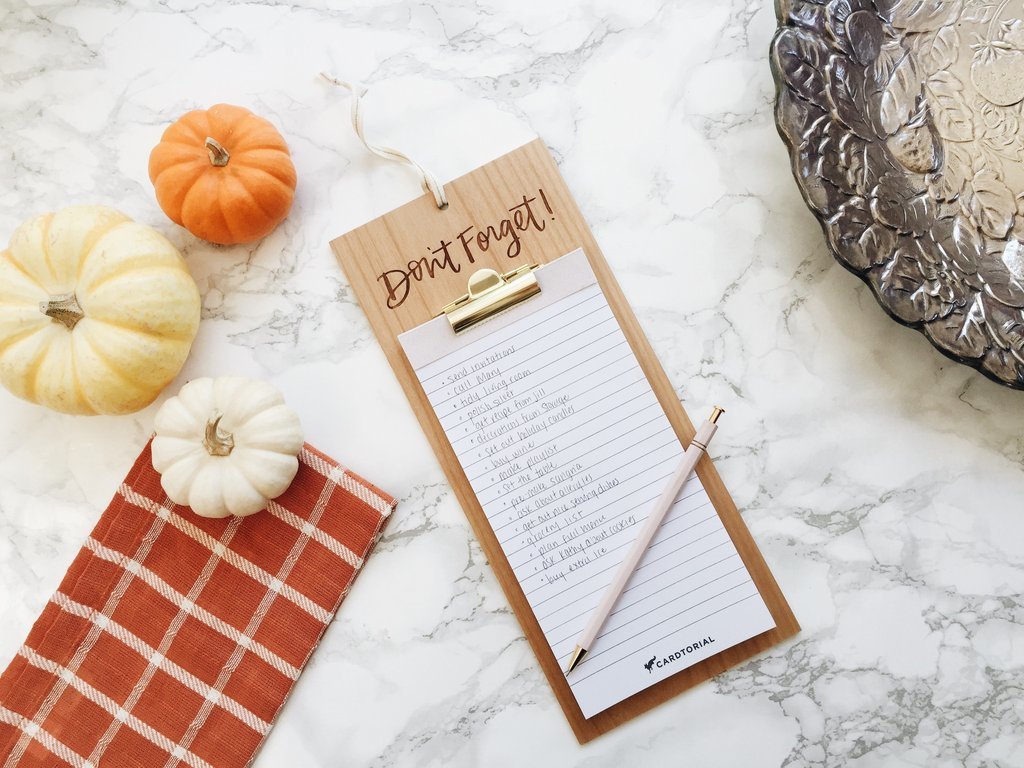 Don't Forget!
• send invitations
• call Mary
• tidy living room
• polish silver
• get recipe from Jill
• decorations from storage
• set out holiday candles
• buy wine
• make playlist
• set the table
• pre-make sangria
• ask about allergies
• get out nice serving dishes
• grocery list
• plan full menu
• ask Kathy about cookies
• buy extra ice
CARDTORIAL